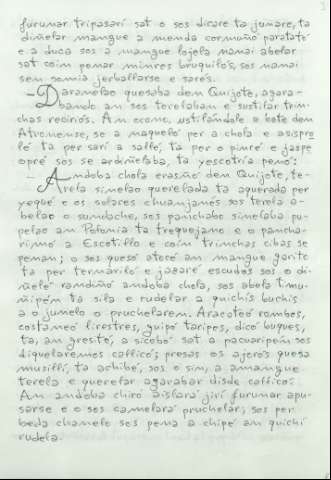 furunar tripasarí sat o sos dicare ta jumare, ta
diñelar mangue a menda cormuño paratato
e a duca sos a mangue lojela nanai abelar
sat coin penar minres bruquilós, sos nanai
sen somia jerballarse e sarés.
— Daranelao quesaba dem Quijote, agara-
bando an sos terelaban e sustilar trin-
chas recinos. An ocono, ustilándole o bate dem
Atronense, se a naqueló per a chola e asispro
lé ta per sarí a sallé, ta por o pinré e jaspe
opré sos se ardiñelaba, ta yescotría penó:
— Andoba chola erasñó dem Quijote, te-
rela sinelao querelada ta aquerada per
yaqué e os solares chuanjanés sos terela a-
belao o sunboche, sos panchabo sinelaba pu-
pelao an Polonia ta trequejano e o pancha-
rimó a Escotillo e coín trinchas cibas se
penan; o sos quesó atocé an mangue garito
ta per ternariló e jazaré escudos sos o di-
ñeló randiñó andoba chola, sos abela timu-
ñipén ta sila e rudelar a quichís buchis
a o jumelo o pruchelaren. Aracoteó rombos,
costaneó lirestres, guipó taripes, dicó buques,
ta, an gresité, a sicobó sat a pacuaripén sos
diquelaremos callicó; presas os ajorós quesa
musilli, ta achibé, sos o sin, a amangue
terela e querelar agarabar disde callico.
An andoba chiró aislará jirí furunar apu-
sarse e o sos camelará pruchelar, sos per
beda chanelo sos pena a chipé an quichí
rudela.